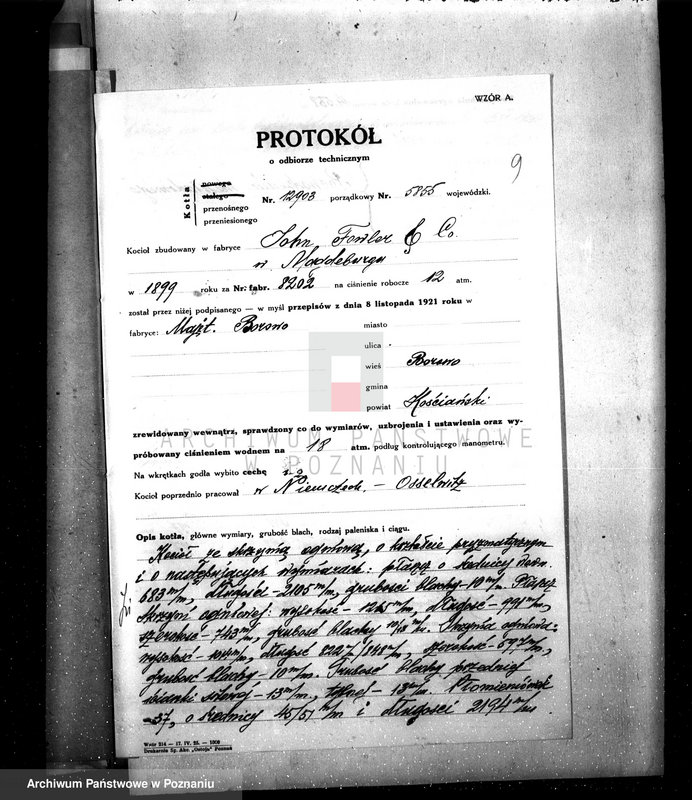 WZÓR A.
PROTOKÓŁ
o odbiorze technicznym
9
Kotła
nowego
stałego
przenośnego
przeniesionego
Nr. 12903 porządkowy Nr. 5855 wojewódzki.
Kocioł zbudowany w fabryce John Fowler & Co.
w Magdeburgu
w 1899 roku za Nr. fabr. 8202 na ciśnienie robocze 12 atm.
został przez niżej podpisanego — w myśl przepisów z dnia 8 listopada 1921 roku w
fabryce: Majęt. Borowo
miasto
ulica
wieś Borowo
gmina
powiat Kościański
zrewidowany wewnątrz, sprawdzony co do wymiarów, uzbrojenia i ustawienia oraz wy-
próbowany ciśnieniem wodnem na 18 atm. podług kontrolującego manometru.
ARCHIWUM PAŃSTWOWE
W POZNANIU
Na wkrętkach godła wybito cechę
Kocioł poprzednio pracował w Niemczech. — Osselwitz
Opis kotła, główne wymiary, grubość blach, rodzaj paleniska i ciągu.
Kocioł ze skrzynią ogniową, o kształcie pryzmatycznym
i o następujących wymiarach: płaszcz o średnicy wewn.
683 m/m, długości - 2105 m/m, grubości blachy - 10 m/m. Płaszcz
skrzyni ogniowej: wysokość - 1265 m/m, długość - 991 m/m,
szerokość - 743 m/m, grubość blachy m/m. Skrzynia ogniowa:
wysokość - m/m, długość m/m, szerokość - m/m,
grubość blachy - 10 m/m. Grubość blachy przedniej
ścianki sitowej - 13 m/m, tylnej - 13 m/m. Płomieniówek
- 37, o średnicy 45/51 m/m i długości 2194 m/m.
Wzór 214 — 17. IV. 25. — 1000
Drukarnia Sp. Akc. „Ostoja" Poznań
Archiwum Państwowe w Poznaniu